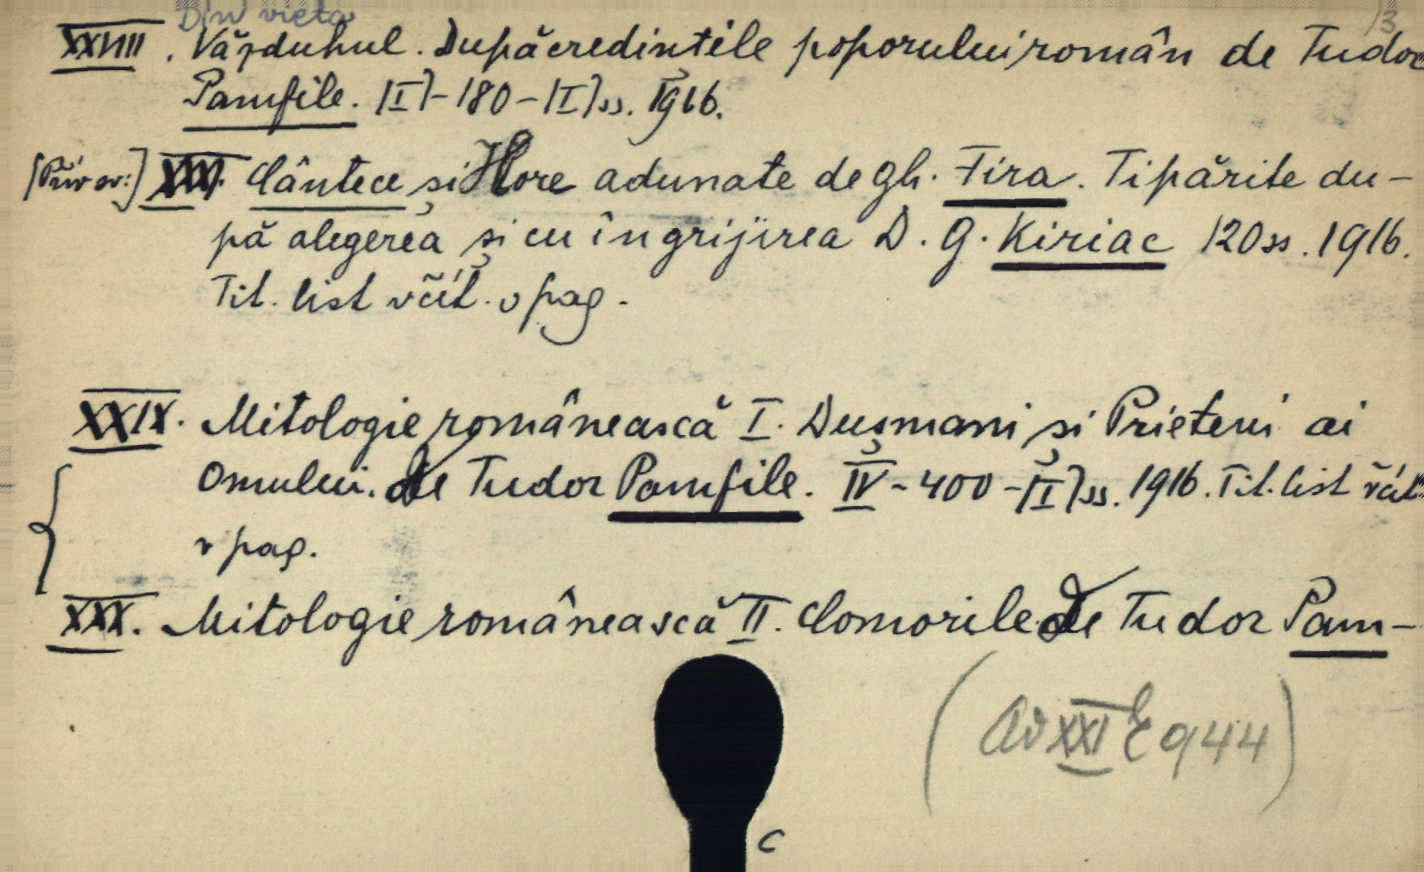 Din vieta
13
XXVIII. Văzduhul. După credintele poporului român de Tudor
Pamfile. [I]-180-[I] ss. 1916.
[Pův. sv.:] XXI. Cântece și Hore adunate de Gh. Fira. Tipărite du-
pă alegerea și cu îngrijirea D. G. Kiriac 120 ss. 1916.
Tit. list včít. v pag.
XXIX. Mitologie românească I. Dușmani și Prieteni ai
Omului. de Tudor Pamfile. IV-400-[II] ss. 1916. Tit. list včít.
v pag.
XXX. Mitologie românească II. Comorile de Tudor Pam-
(Av XXI E 944)
C